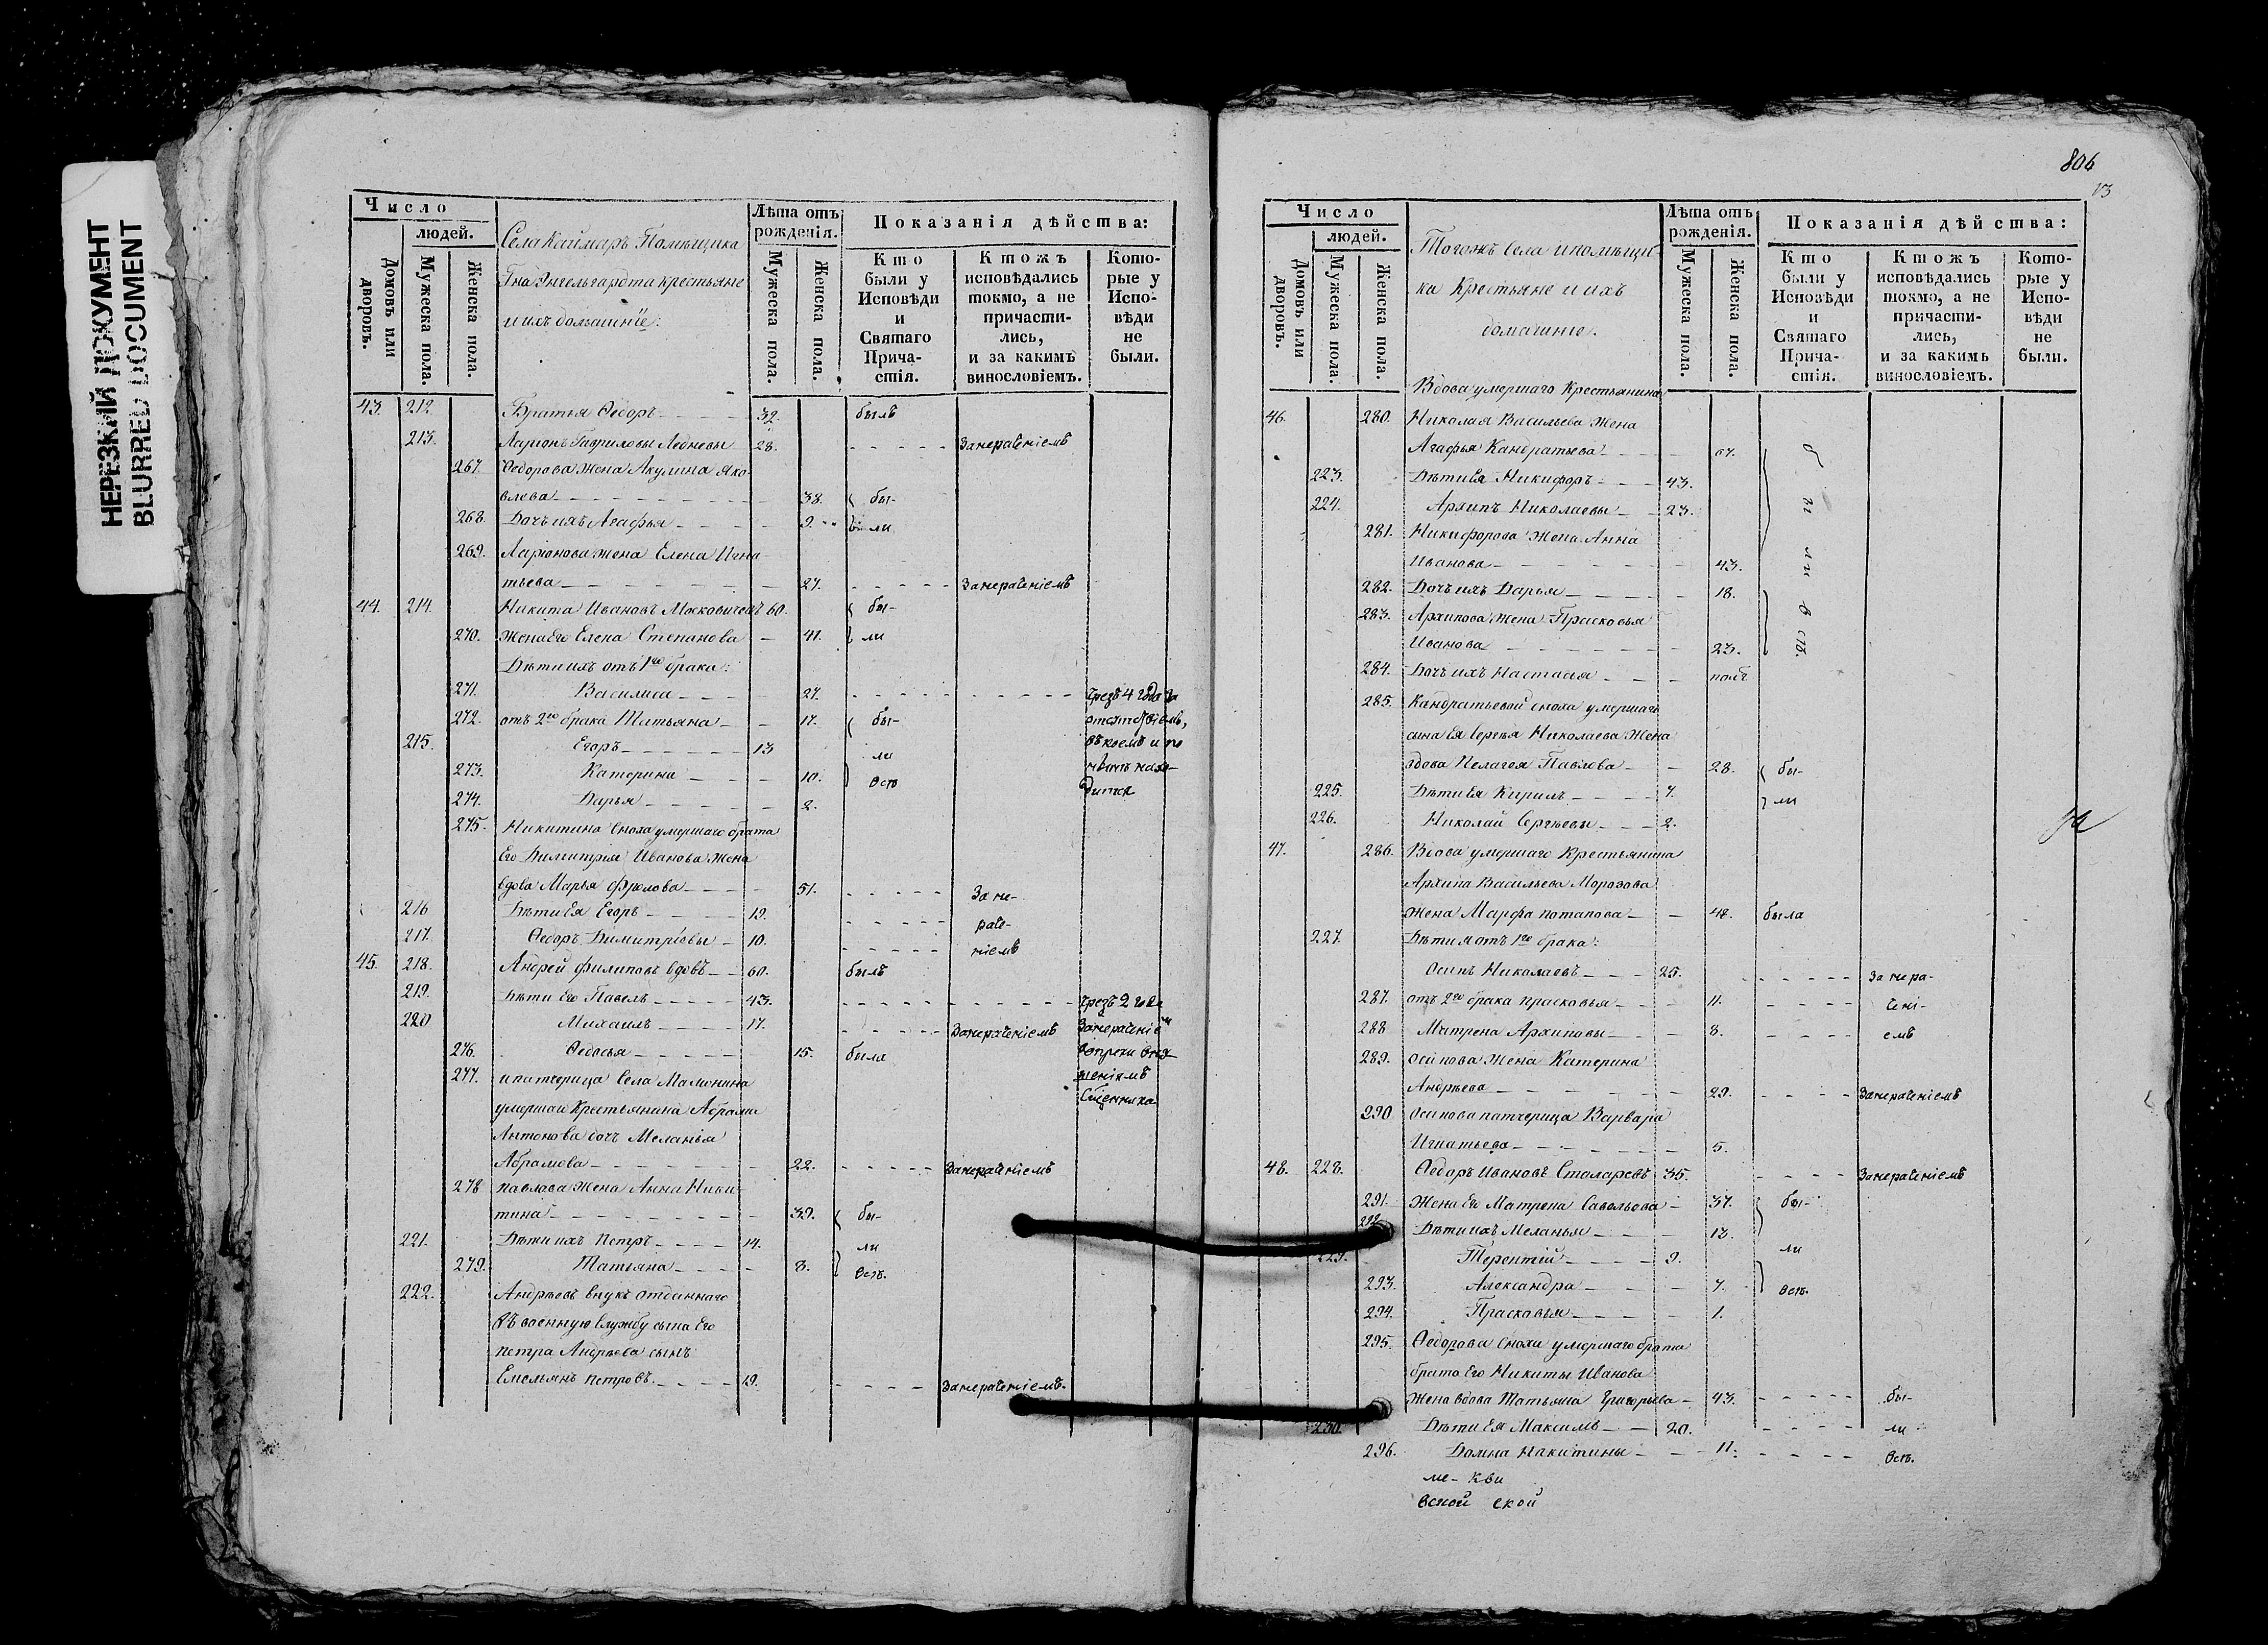 НЕРЕЗКИЙ ДОКУМЕНТ
BLURRED DOCUMENT
Число
людей.
Домовъ или дворовъ.
Мужеска пола.
Женска пола.
Села Каймаръ Помѣщика
Гна Энгельгардта крестьяне
и ихъ домашніе:
Лѣта отъ рожденія.
Мужеска пола.
Женска пола.
Показанія дѣйства:
Кто были у Исповѣди и Святаго Прича-стія.
Ктожъ исповѣдались токмо, а не причасти-лись, и за какимъ винословіемъ.
Кото-рые у Испо-вѣди не были.
43. 212. Братья Ѳедоръ 32. былъ
213. Ларіонъ Гавриловы Ледневы 28. Занераченіемъ
267. Ѳедорова жена Акулина Яко-
влева 38. бы-
268. Дочь ихъ Агафья 9. ли
269. Ларіонова жена Елена Игна-
тьева 27. Занераченіемъ
44. 214. Никита Ивановъ 60. бы-
270. Жена Его Елена Степанова 41. ли
Дѣти ихъ отъ 1го брака:
271. Василиса 27. чрезъ 4 года за
272. отъ 2го брака Татьяна 17. бы- отсутствіемъ,
215. Егоръ 13 ли въ коемъ и по
273. Катерина 10. всѣ нынѣ нахо-
274. Дарья 2. дится
275. Никитина сноха умершаго брата
Его Димитрія Иванова жена
вдова Марья Фролова 51. За не-
216 Дѣти Ея Егоръ 19. раче-
217. Ѳедоръ Димитріевы 10. ніемъ
45. 218. Андрей Филиповъ вдовъ 60. былъ
219. Дѣти Его Павелъ 43. чрезъ 2 года
220 Михаилъ 17. Занераченіемъ Занераченіемъ
276. Ѳедосья 15. была вопреки вну-
277. и патчерица села Мамонина шеніямъ
умершаи Крестьянина Абрама Сщенника
Антонова дочь Меланья
Абрамова 22. Занераченіемъ
278 Павлова Жена Анна Ники-
тина 39. бы-
221. Дѣти ихъ Петръ 14. ли
279. Татьяна 8. всѣ.
222. Андреевъ внукъ отданнаго
Въ военную службу сына Его
петра Андреева сынъ
Емельянъ петровъ. 19. Занераченіемъ.
806
Число
людей.
Домовъ или дворовъ.
Мужеска пола.
Женска пола.
Тогожъ Села и помѣщи-
ка Крестьяне и ихъ
домашніе.
Лѣта отъ рожденія.
Мужеска пола.
Женска пола.
Показанія дѣйства:
Кто были у Исповѣди и Святаго Прича-стія.
Ктожъ исповѣдались токмо, а не причасти-лись, и за какимъ винословіемъ.
Кото-рые у Испо-вѣди не были.
Вдова умершаго Крестьянина
46. 280. Николая Васильева Жена
Агафья Кандратьева 67. б
223. Дѣти Ея Никифоръ 43.
224. Архипъ Николаевы 23. ы
281. Никифорова Жена Анна
Иванова 43. ли
282. Дочь ихъ Дарья 18.
283. Архипова жена Прасковья
Иванова 23. всѣ.
284. Дочь ихъ Настасья полг
285. Кандратьевой сноха умершаго
сына Ея Сергѣя Николаева Жена
вдова Пелагея Павлова 28. бы-
225. Дѣти Ея Кирилъ 7. ли
226. Николай Сергѣевы 2.
47. 286. Вдова умершаго Крестьянина
Архипа Васильева Морозова
жена Марфа потапова 48. была
227. Дѣти я отъ 1го брака:
Осипъ Николаевъ 25. За нера-
287. отъ 2го брака прасковья 11. чені-
288 Матрена Архиповы 8. емъ
289. Осипова Жена Катерина
Андреева 29. Занераченіемъ
290 Осипова патчерица Варвара
Игнатьева 5.
48. 228. Ѳедоръ Ивановъ Столаревъ 35. Занераченіемъ
291. Жена Его Матрена Савельова 37. бы-
292 Дѣти ихъ Меланья 13.
229. Терентій 9. ли
293. Александра 7. всѣ.
294. Прасковья 1.
295. Ѳедорова сноха умершаго брата
брата Его Никиты Иванова
Жена вдова Татьяна Григорьева 43. бы-
230. Дѣти Ея Максимъ 20. ли
296. Домна Никитины 11. всѣ.